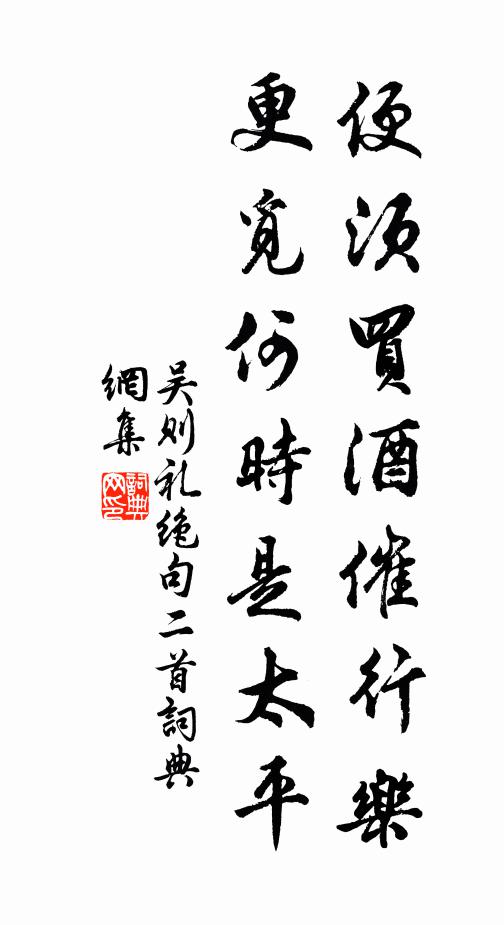 便須買酒催行樂
更覓何時是太平
吴则礼绝句二首詞典
網集
詞典网印